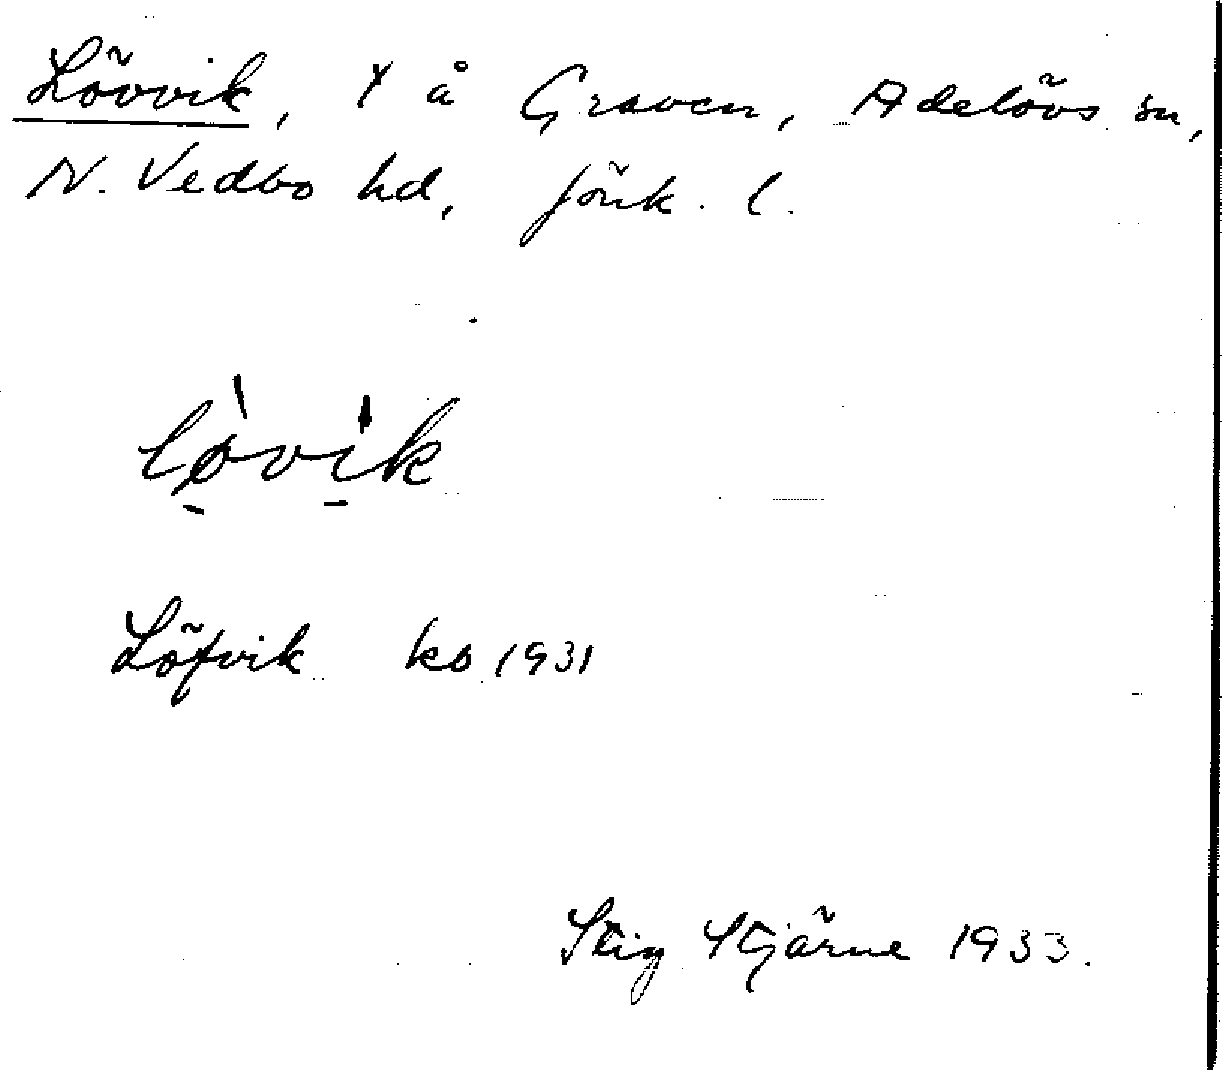 Lövvik, † å Graven, Adelövs sn,
N. Vedbo hd, Jönk. l.
lòvik
Löfvik ko 1931
Stig Stjärne 1933.